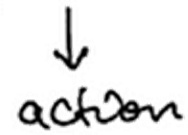 ↓
action